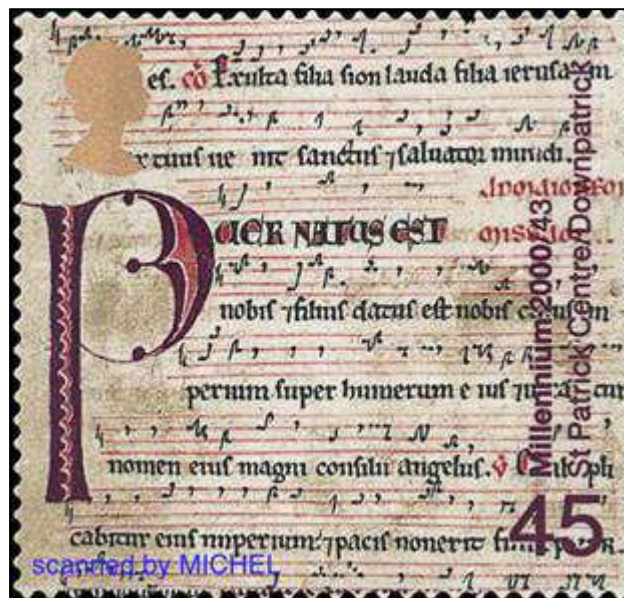 es. cō Exulta filia sion lauda filia ierusalem
rex tuus ue nit sanctus ⁊saluator mundi.
PUER NATUS EST
nobis ⁊filius datus est nobis
perium super humerum e ius
nomen eius magni consilii angelus. v̄
cabitur eius imperium: ⁊pacis non erit
Millennium 2000/43
St Patrick Centre/Downpatrick
45
scanned by MICHEL